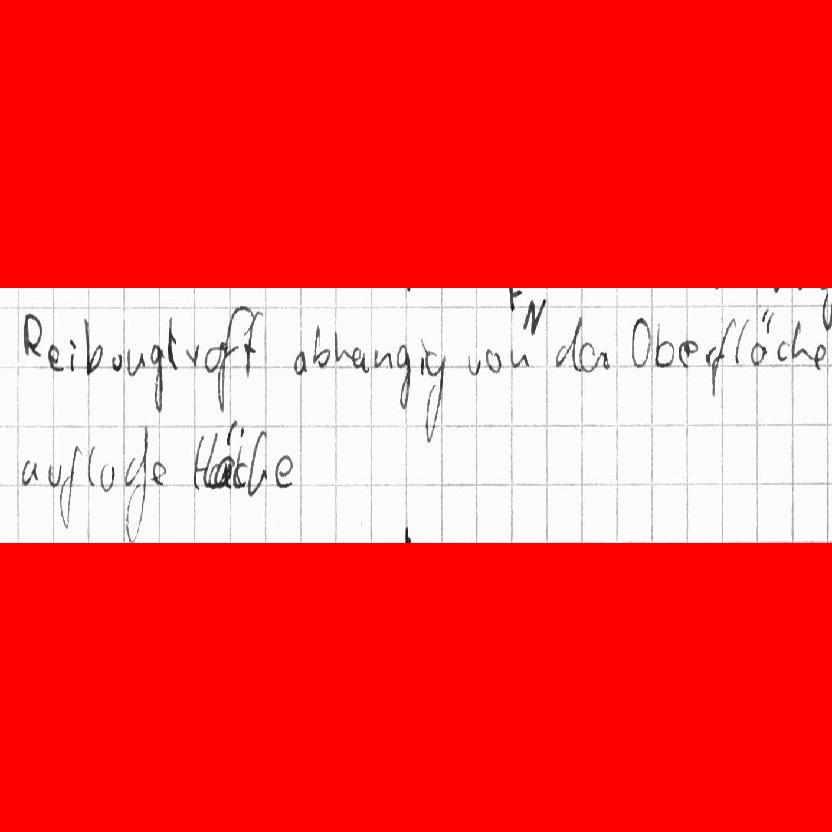 F_N
Reibungkraft abhangig von der Oberfläche
auflage fläche